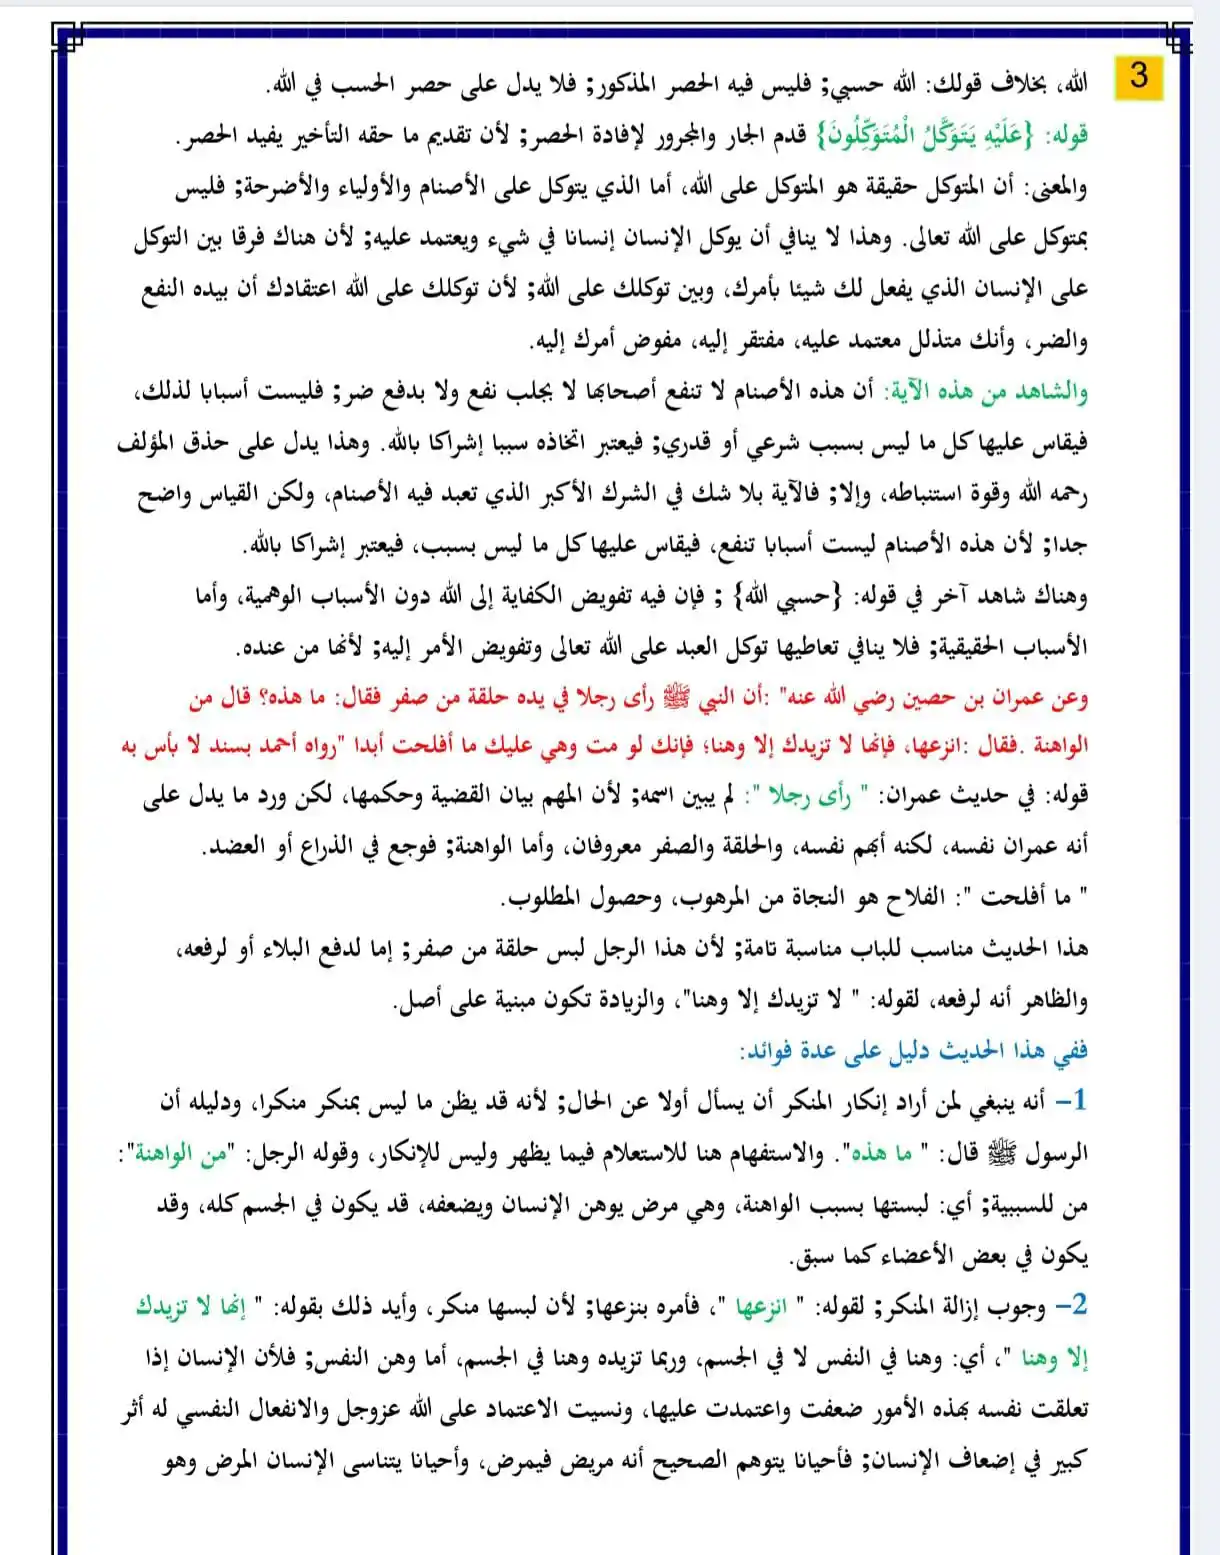 3
الله، بخلاف قولك: الله حسبي; فليس فيه الحصر المذكور; فلا يدل على حصر الحسب في الله.
قوله: {عَلَيْهِ يَتَوَكَّلُ الْمُتَوَكِّلُونَ} قدم الجار والمجرور لإفادة الحصر; لأن تقديم ما حقه التأخير يفيد الحصر.
والمعنى: أن المتوكل حقيقة هو المتوكل على الله، أما الذي يتوكل على الأصنام والأولياء والأضرحة; فليس
بمتوكل على الله تعالى. وهذا لا ينافي أن يوكل الإنسان إنسانا في شيء ويعتمد عليه; لأن هناك فرقا بين التوكل
على الإنسان الذي يفعل لك شيئا بأمرك، وبين توكلك على الله; لأن توكلك على الله اعتقادك أن بيده النفع
والضر، وأنك متذلل معتمد عليه، مفتقر إليه، مفوض أمرك إليه.
والشاهد من هذه الآية: أن هذه الأصنام لا تنفع أصحابها لا بجلب نفع ولا بدفع ضر; فليست أسبابا لذلك،
فيقاس عليها كل ما ليس بسبب شرعي أو قدري; فيعتبر اتخاذه سببا إشراكا بالله. وهذا يدل على حذق المؤلف
رحمه الله وقوة استنباطه، وإلا; فالآية بلا شك في الشرك الأكبر الذي تعبد فيه الأصنام، ولكن القياس واضح
جدا; لأن هذه الأصنام ليست أسبابا تنفع، فيقاس عليها كل ما ليس بسبب، فيعتبر إشراكا بالله.
وهناك شاهد آخر في قوله: {حسبي الله} ; فإن فيه تفويض الكفاية إلى الله دون الأسباب الوهمية، وأما
الأسباب الحقيقية; فلا ينافي تعاطيها توكل العبد على الله تعالى وتفويض الأمر إليه; لأنها من عنده.
وعن عمران بن حصين رضي الله عنه" :أن النبي ﷺ رأى رجلا في يده حلقة من صفر فقال: ما هذه؟ قال من
الواهنة .فقال :انزعها، فإنها لا تزيدك إلا وهنا؛ فإنك لو مت وهي عليك ما أفلحت أبدا "رواه أحمد بسند لا بأس به
قوله: في حديث عمران: " رأى رجلا ": لم يبين اسمه; لأن المهم بيان القضية وحكمها، لكن ورد ما يدل على
أنه عمران نفسه، لكنه أبهم نفسه، والحلقة والصفر معروفان، وأما الواهنة; فوجع في الذراع أو العضد.
" ما أفلحت ": الفلاح هو النجاة من المرهوب، وحصول المطلوب.
هذا الحديث مناسب للباب مناسبة تامة; لأن هذا الرجل لبس حلقة من صفر; إما لدفع البلاء أو لرفعه،
والظاهر أنه لرفعه، لقوله: " لا تزيدك إلا وهنا"، والزيادة تكون مبنية على أصل.
ففي هذا الحديث دليل على عدة فوائد:
1– أنه ينبغي لمن أراد إنكار المنكر أن يسأل أولا عن الحال; لأنه قد يظن ما ليس بمنكر منكرا، ودليله أن
الرسول ﷺ قال: " ما هذه". والاستفهام هنا للاستعلام فيما يظهر وليس للإنكار، وقوله الرجل: "من الواهنة":
من للسببية; أي: لبستها بسبب الواهنة، وهي مرض يوهن الإنسان ويضعفه، قد يكون في الجسم كله، وقد
يكون في بعض الأعضاء كما سبق.
2– وجوب إزالة المنكر; لقوله: " انزعها "، فأمره بنزعها; لأن لبسها منكر، وأيد ذلك بقوله: " إنها لا تزيدك
إلا وهنا "، أي: وهنا في النفس لا في الجسم، وربما تزيده وهنا في الجسم، أما وهن النفس; فلأن الإنسان إذا
تعلقت نفسه بهذه الأمور ضعفت واعتمدت عليها، ونسيت الاعتماد على الله عزوجل والانفعال النفسي له أثر
كبير في إضعاف الإنسان; فأحيانا يتوهم الصحيح أنه مريض فيمرض، وأحيانا يتناسى الإنسان المرض وهو